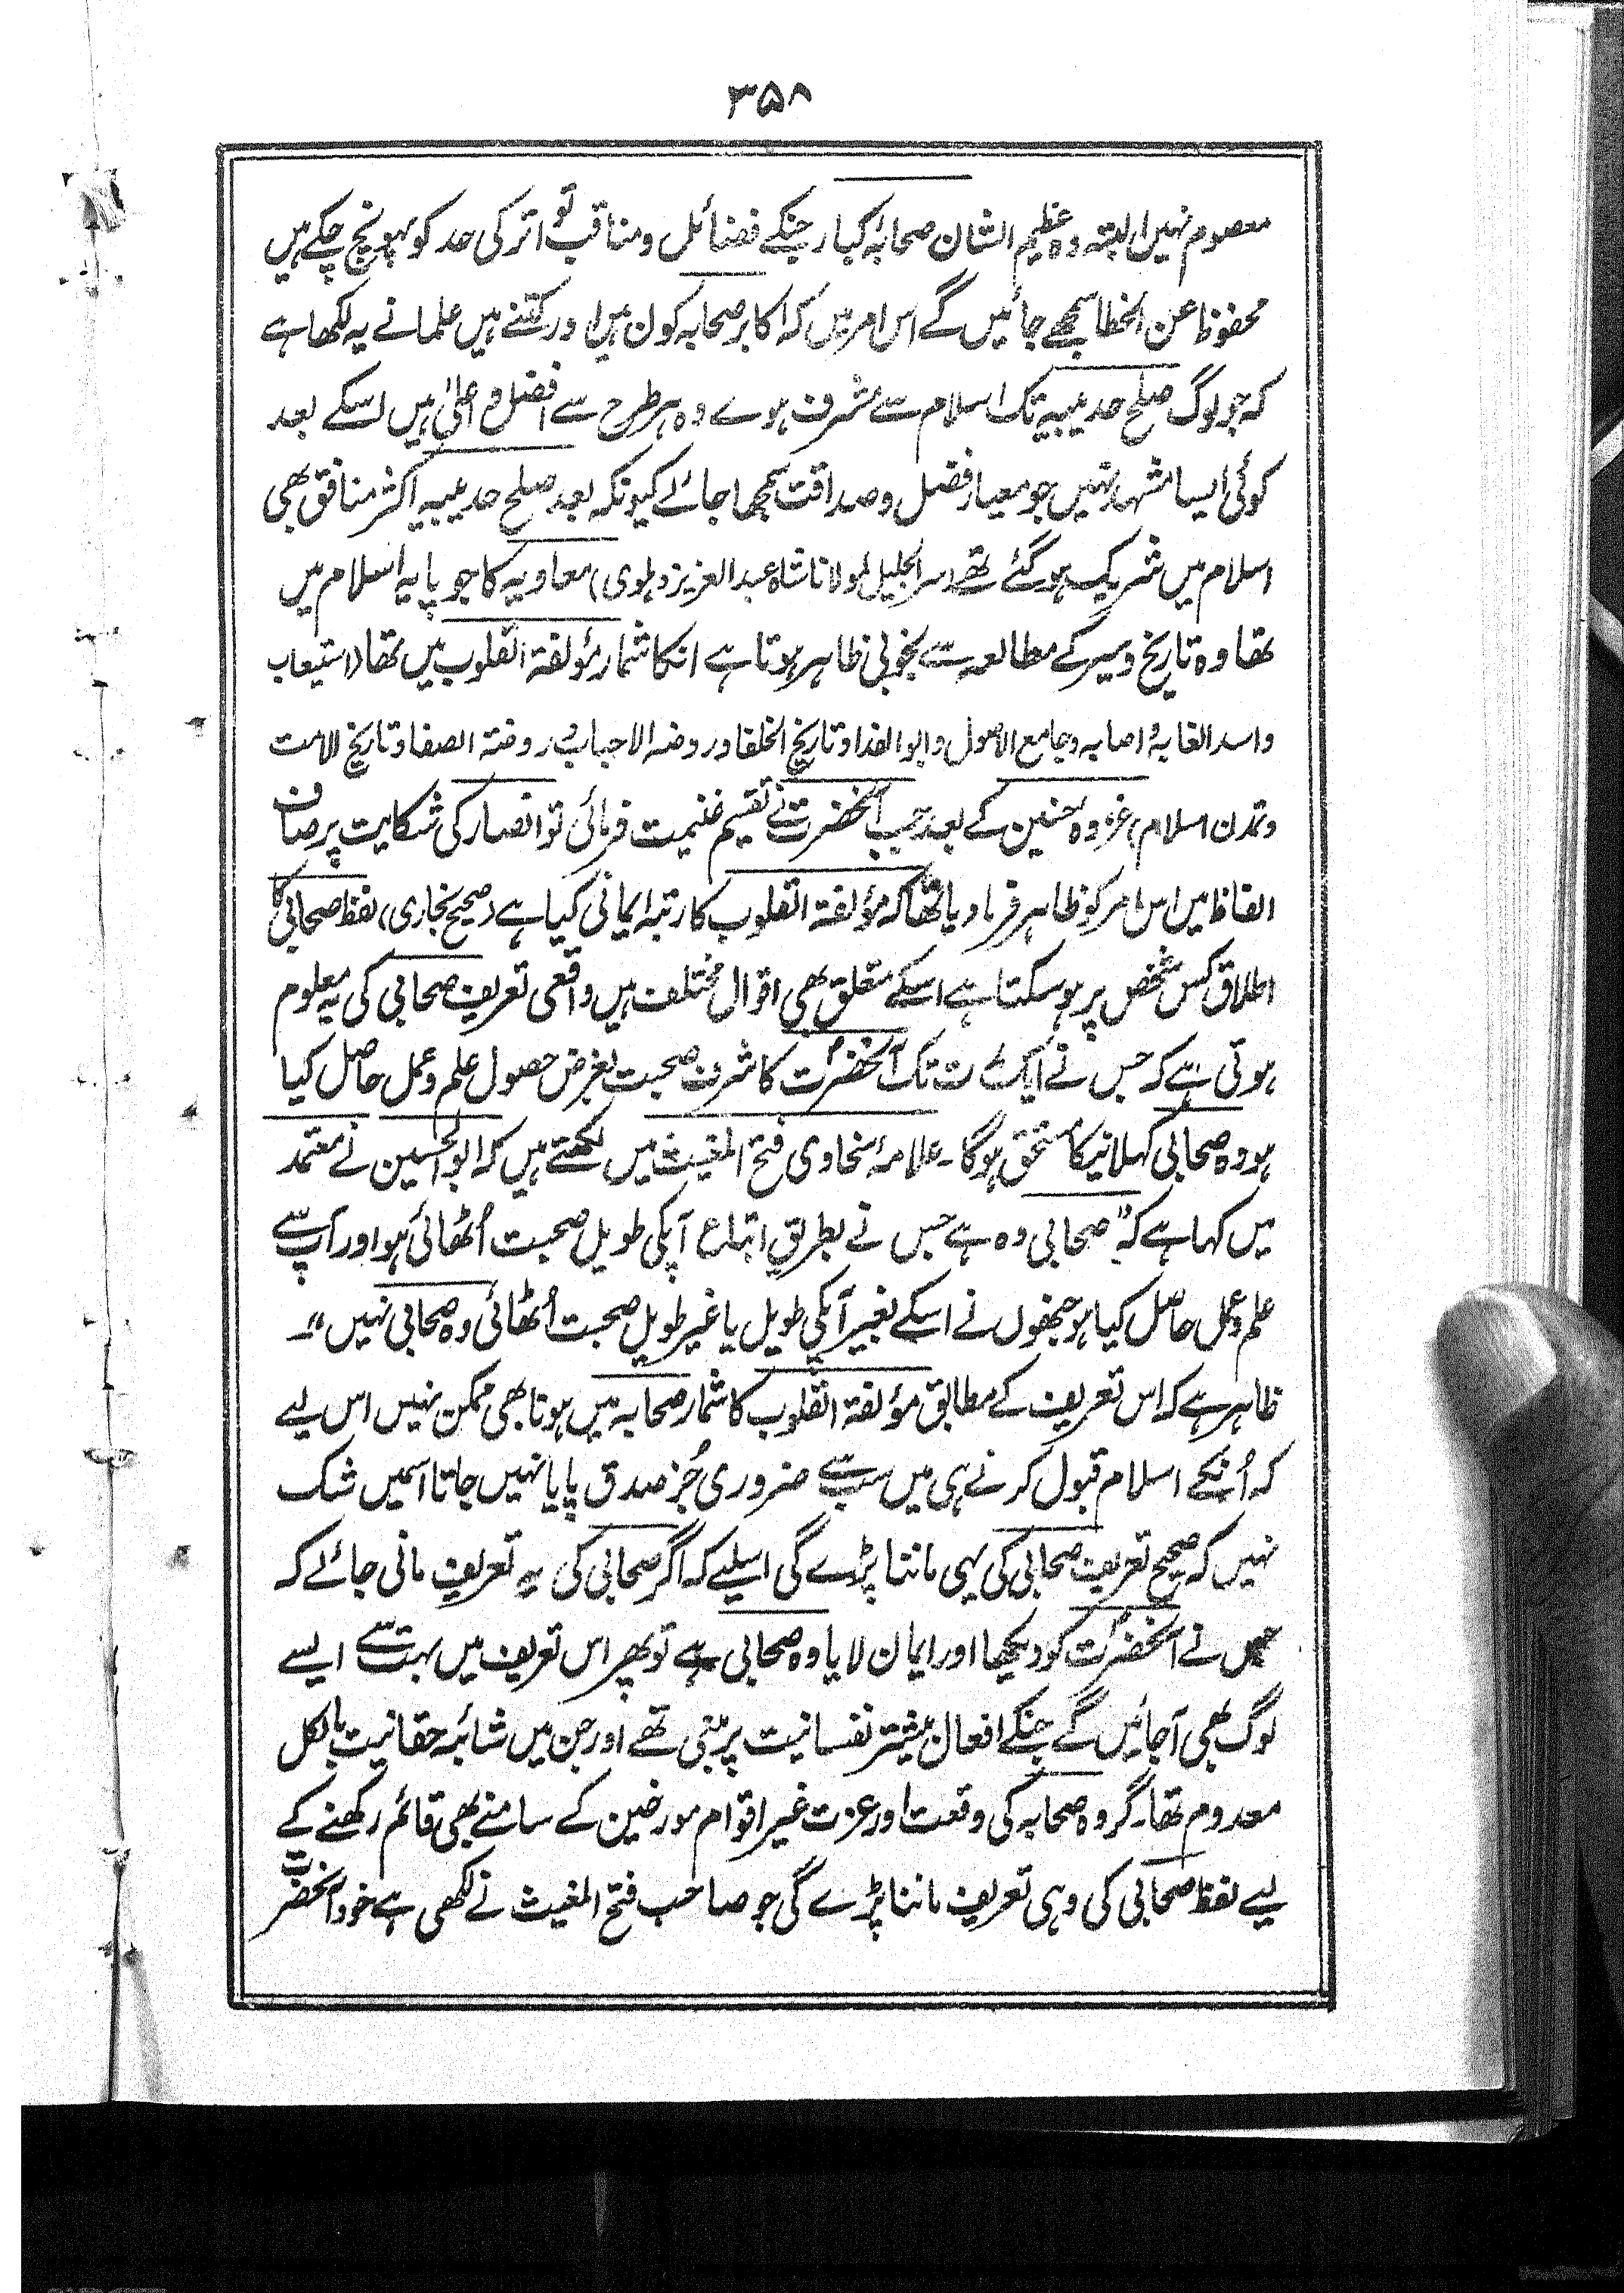 ۳۵۸
معصوم نہیں البتہ وہ عظیم الشان صحابۂ کبار جنکے فضائل و مناقب تواتر کی حد کو پہونچ چکے ہیں
محفوظ عن الخطا سمجھے جائیں گے اس امر میں کہ اکابر صحابہ کون ہیں اور کتنے ہیں علما نے یہ لکھا ہے
کہ جو لوگ صلح حدیبیہ تک اسلام سے مشرف ہوے وہ ہر طرح سے افضل و اعلیٰ ہیں اسکے بعد
کوئی ایسا مشہد نہیں جو معیار فضل و صداقت سمجھا جائے کیونکہ بعد صلح حدیبیہ اکثر منافق بھی
اسلام میں شریک ہو گئے تھے (سر الجلیل لمولانا شاہ عبد العزیز دہلوی) معاویہ کا جو پایہ اسلام میں
تھا وہ تاریخ و سیر کے مطالعہ سے بخوبی ظاہر ہوتا ہے انکا شمار مؤلفۃ القلوب میں تھا (استیعاب
و اسد الغابہ و اصابہ و جامع الاصول و ابو الفدا و تاریخ الخلفا و روضۃ الاحباب و روضۃ الصفا و تاریخ الامت
و تمدن اسلام) غزوۂ حنین کے بعد جب آنحضرت نے تقسیم غنیمت فرمائی تو انصار کی شکایت پر صاف
الفاظ میں اس امر کو ظاہر فرما دیا تھا کہ مؤلفۃ القلوب کا رتبہ ایمانی کیا ہے (صحیح بخاری) لفظ صحابی کا
اطلاق کس شخص پر ہو سکتا ہے اسکے متعلق بھی اقوال مختلف ہیں واقعی تعریف صحابی کی یہ معلوم
ہوتی ہے کہ جس نے ایک مدت تک آنحضرت کا شرف صحبت بغرض حصول علم و عمل حاصل کیا
ہو وہ صحابی کہلانیکا مستحق ہوگا۔ علامۂ سخاوی فتح المغیث میں لکھتے ہیں کہ ابو الحسین نے معتمد
میں کہا ہے کہ "صحابی وہ ہے جس نے بطریق اتباع آپکی طویل صحبت اُٹھائی ہو اور آپ سے
علم و عمل حاصل کیا ہو جنھوں نے اسکے بغیر آپکی طویل یا غیر طویل صحبت اُٹھائی وہ صحابی نہیں"۔
ظاہر ہے کہ اس تعریف کے مطابق مؤلفۃ القلوب کا شمار صحابہ میں ہونا بھی ممکن نہیں اس لیے
کہ اُنکے اسلام قبول کرنے ہی میں سب سے ضروری جُز صدق پایا نہیں جاتا اسمیں شک
نہیں کہ صحیح تعریف صحابی کی یہی ماننا پڑے گی اسلیے کہ اگر صحابی کی یہ تعریف مانی جائے کہ
جس نے آنحضرت کو دیکھا اور ایمان لایا وہ صحابی ہے تو پھر اس تعریف میں بہت سے ایسے
لوگ بھی آجائیں گے جنکے افعال بیشتر نفسانیت پر مبنی تھے اور جن میں شائبہ حقانیت بالکل
معدوم تھا۔ گروہ صحابہ کی وقعت اور عزت غیر اقوام مورخین کے سامنے بھی قائم رکھنے کے
لیے لفظ صحابی کی وہی تعریف ماننا پڑے گی جو صاحب فتح المغیث نے لکھی ہے خود آنحضرت